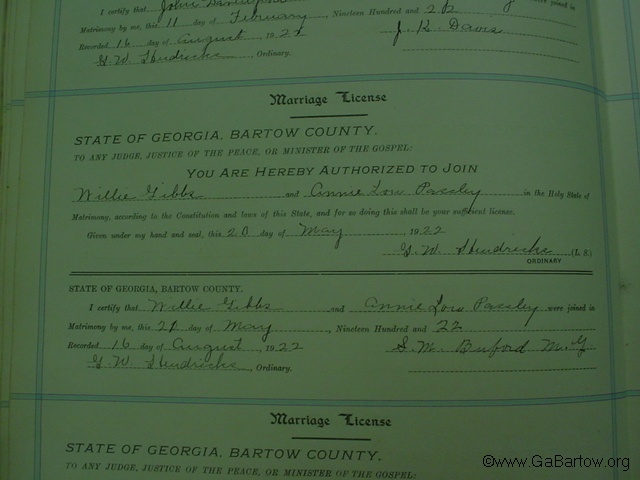 I certify that John were joined in
Matrimony by me, this 11 day of February Nineteen Hundred and 22
Recorded 16 day of August 1922 J. R. Davis
G. W. Hendricks, Ordinary.
Marriage License
STATE OF GEORGIA, BARTOW COUNTY.
TO ANY JUDGE, JUSTICE OF THE PEACE, OR MINISTER OF THE GOSPEL:
YOU ARE HEREBY AUTHORIZED TO JOIN
Willie Gibbs and Annie Lou Passley in the Holy State of
Matrimony, according to the Constitution and laws of this State, and for so doing this shall be your sufficient license.
Given under my hand and seal, this 20 day of May, 1922
G. W. Hendricks (L. S.)
ORDINARY
STATE OF GEORGIA, BARTOW COUNTY.
I certify that Willie Gibbs and Annie Lou Passley were joined in
Matrimony by me, this 21 day of May, Nineteen Hundred and 22
Recorded 16 day of August, 1922 S. M. Buford M. G.
G. W. Hendricks, Ordinary.
Marriage License
STATE OF GEORGIA, BARTOW COUNTY.
TO ANY JUDGE, JUSTICE OF THE PEACE, OR MINISTER OF THE GOSPEL:
©www.GaBartow.org